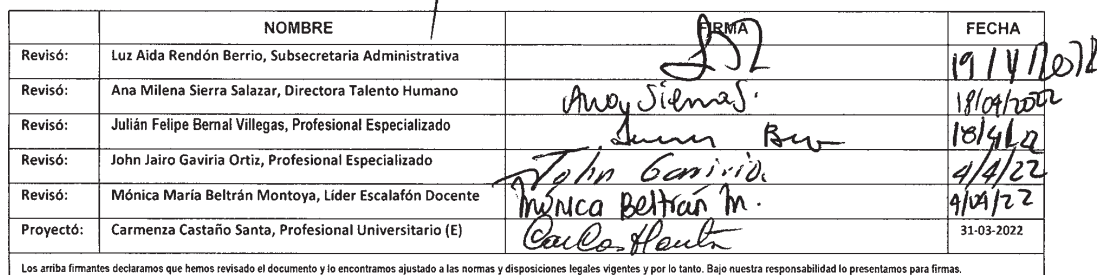 NOMBRE FIRMA FECHA
Revisó: Luz Aida Rendón Berrio, Subsecretaria Administrativa
Revisó: Ana Milena Sierra Salazar, Directora Talento Humano Ana Sierra S. 18/04/2022
Revisó: Julián Felipe Bernal Villegas, Profesional Especializado 18/4/22
Revisó: John Jairo Gaviria Ortiz, Profesional Especializado John Gaviria. 4/4/22
Revisó: Mónica María Beltrán Montoya, Líder Escalafón Docente Mónica Beltrán M. 4/04/22
Proyectó: Carmenza Castaño Santa, Profesional Universitario (E) 31-03-2022
Los arriba firmantes declaramos que hemos revisado el documento y lo encontramos ajustado a las normas y disposiciones legales vigentes y por lo tanto. Bajo nuestra responsabilidad lo presentamos para firmas.